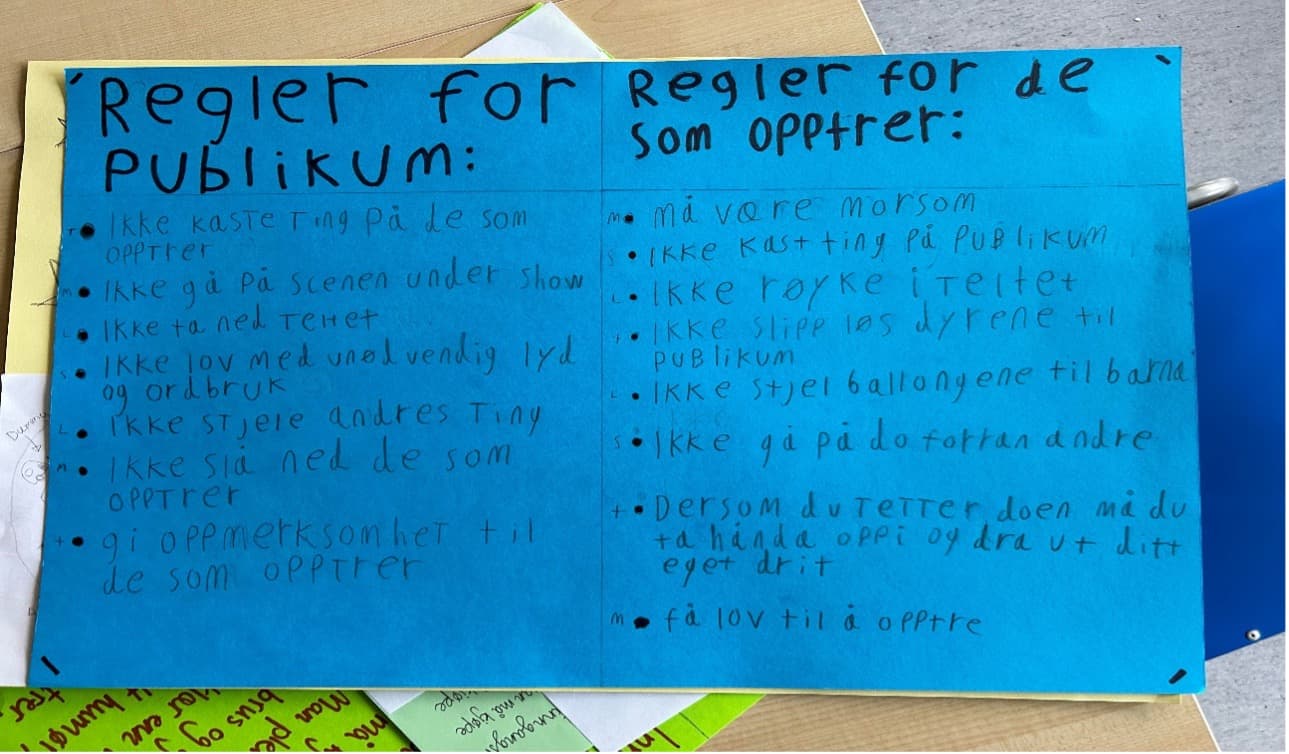 Regler for
PUBLIKUM:
• IKKE KASTE Ting på de som
OPPTrer
• IKKE gå på scenen under show
• IKKE ta ned Teltet
• IKKE lov med unødvendig lyd
og ordbruk
• IKKE STjele andres Ting
• IKKE slå ned de som
OPPTrer
• gi oppmerksomhet til
de som OPPTrer
Regler for de
som opptrer:
• må være morsom
• IKKE Kast ting På PUBlikum
• IKKE røyke i Teltet
• IKKE slipp løs dyrene til
PUBlikum
• IKKE stjel ballongene til barna
• IKKE gå på do forran andre
• Dersom du TeTTer doen må du
ta hånda oppi og dra ut ditt
eget drit
• få lov til å opptre
Dummy